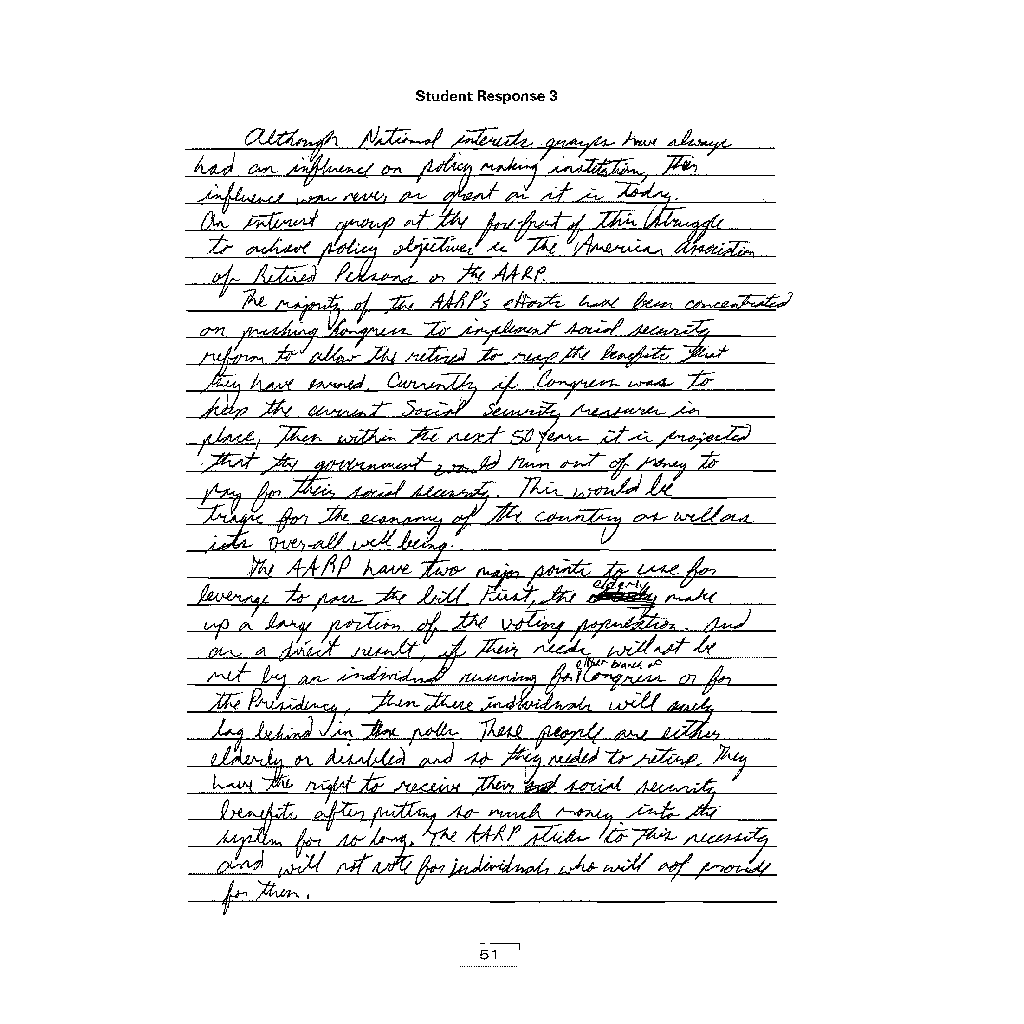 Student Response 3
Although National interests groups have always
had an influence on policy making institution, their
influence was never as great as it is today.
An interest group at the forefront of this struggle
to achieve policy objectives is the American Association
of Retired Persons or the AARP.
The majority of the AARP's efforts have been concentrated
on pushing Congress to implement social security
reform to allow the retired to reap the benefits that
they have earned. Currently if Congress was to
keep the current Social Security measures in
place, then within the next 50 years it is projected
that the government would run out of money to
pay for their social security. This would be
tragic for the economy of the country as well as
its over-all well being.
The AARP have two major points to use for
leverage to pass the bill. First, the elderly make
up a large portion of the voting population. And
as a direct result, if their needs will not be
met by an individual running for either branch of Congress or for
the Presidency, then these individuals will surely
lag behind in the polls. These people are either
elderly or disabled and so they needed to retire. They
have the right to receive their social security
benefits after putting so much money into the
system for so long. The AARP sticks to this necessity
and will not vote for individuals who will not provide
for them.
51